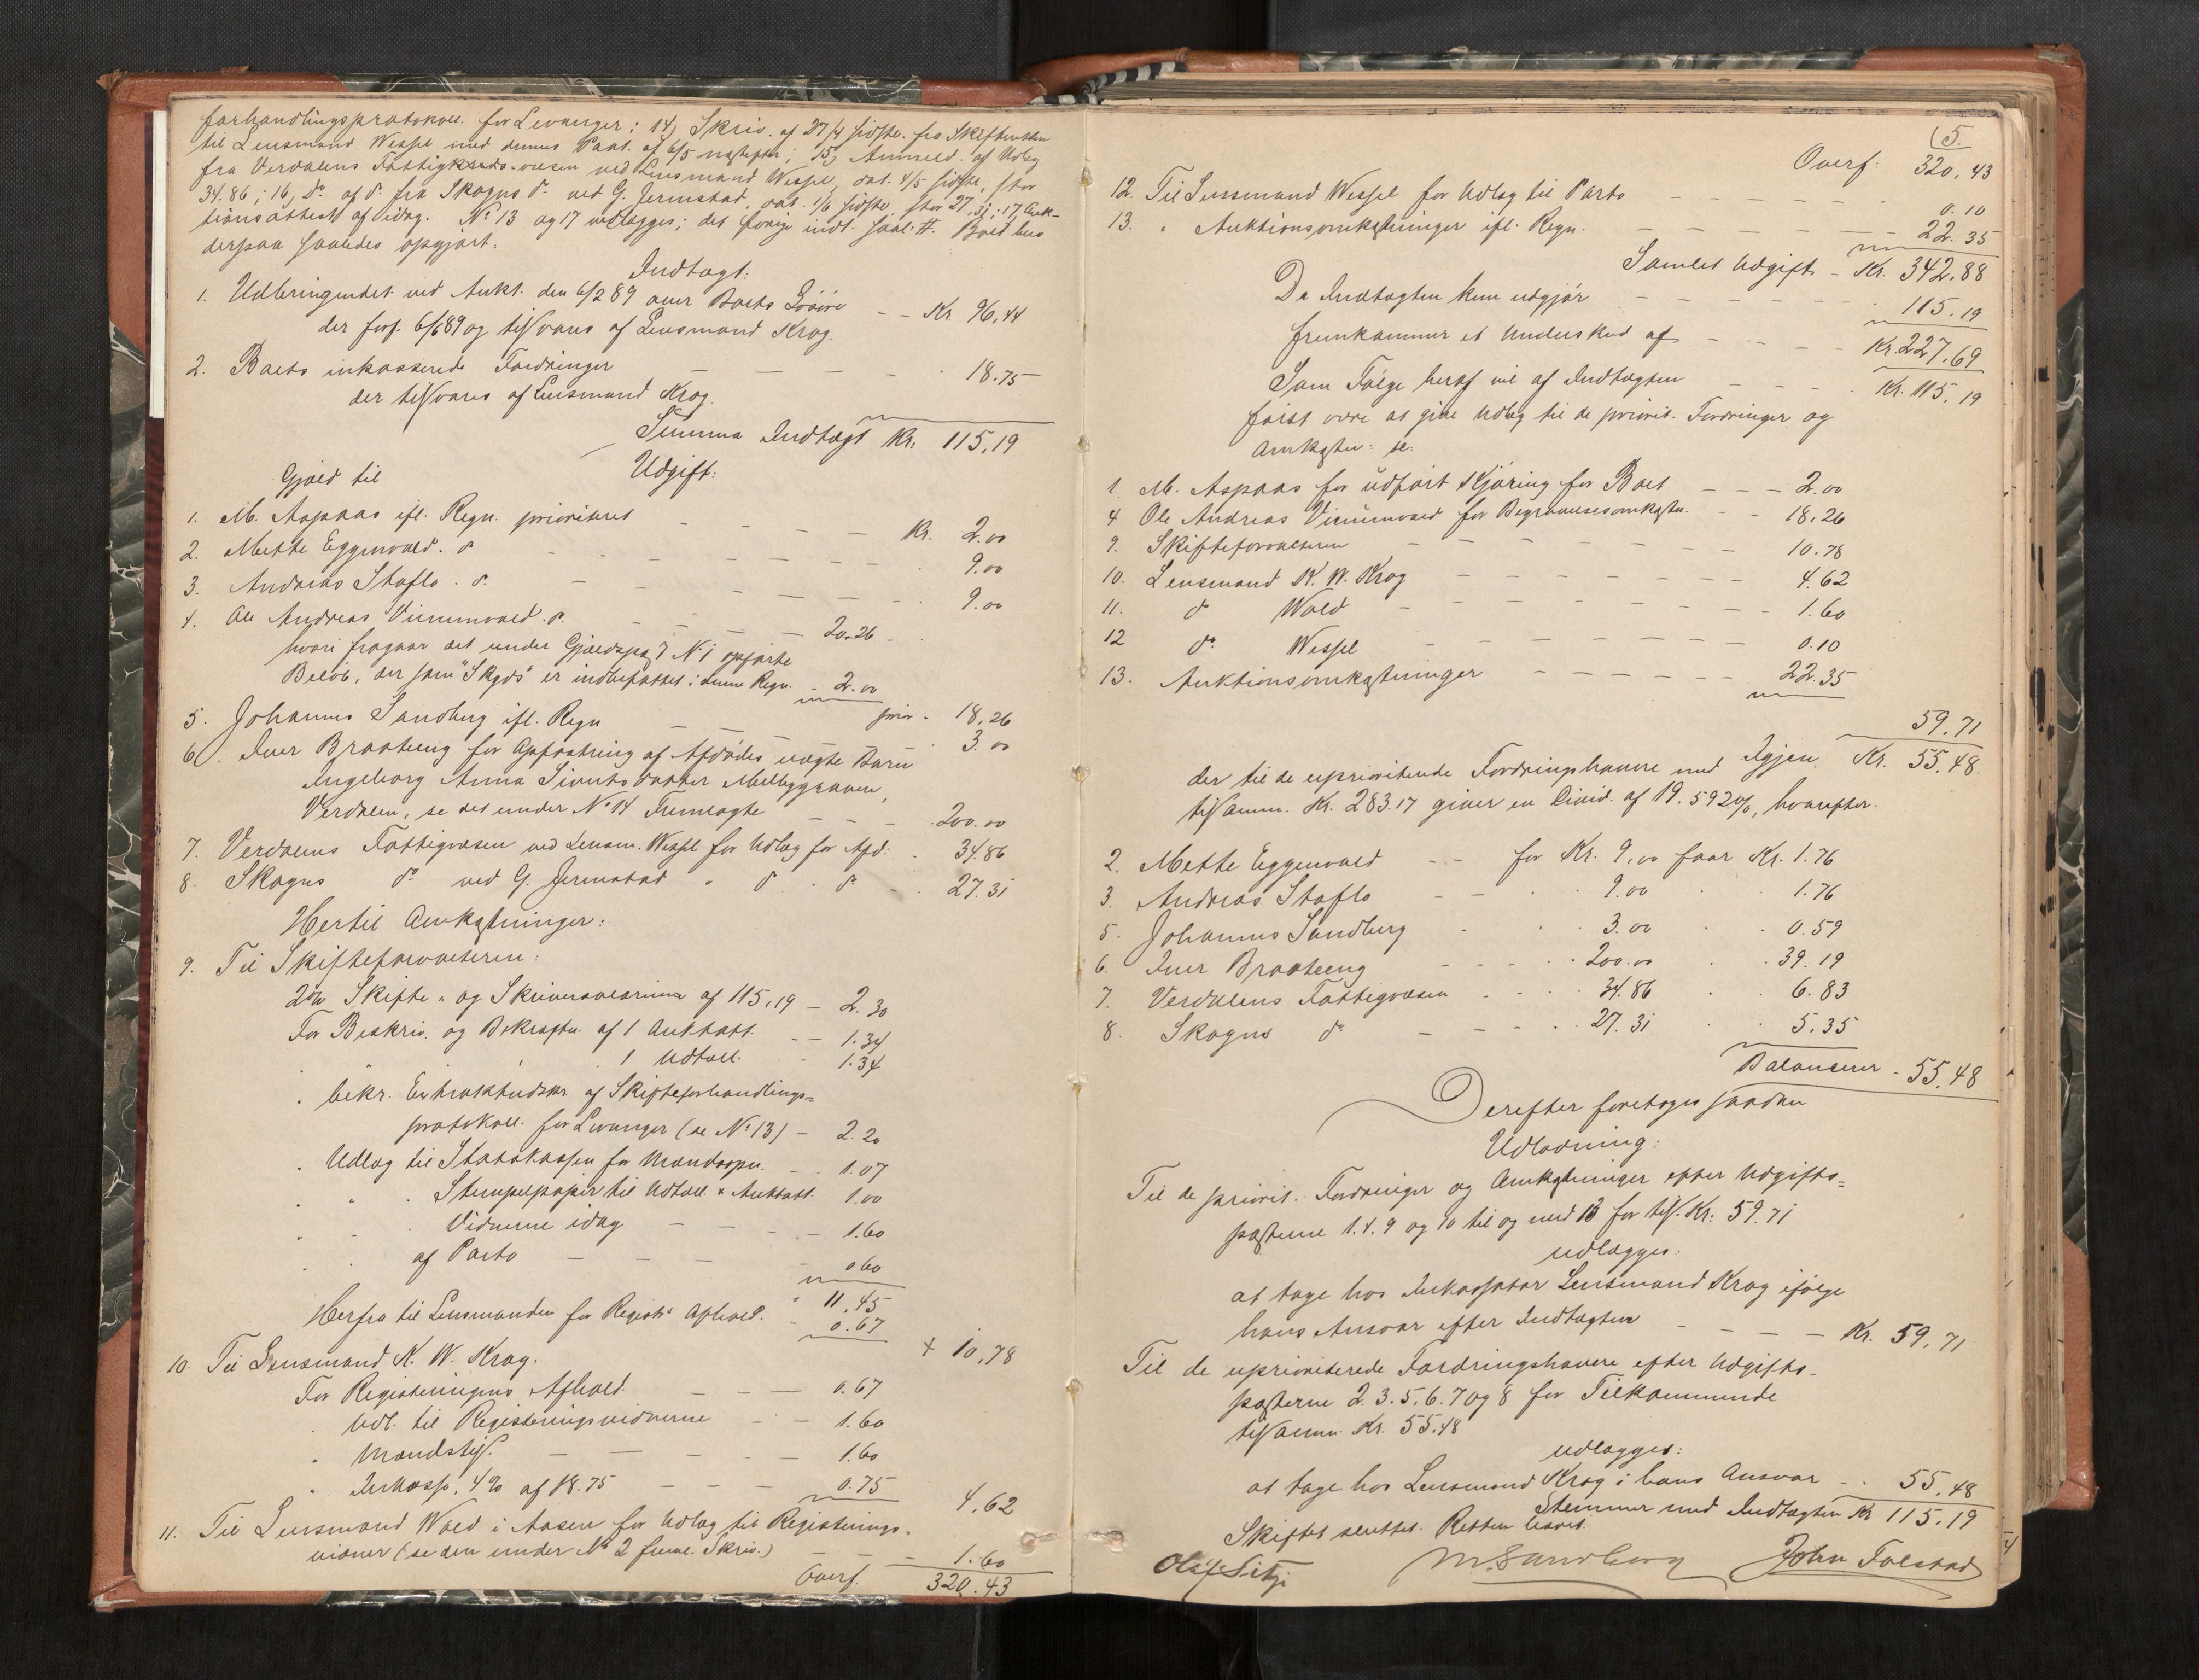 forhandlingsprotokoll for Levanger; 14) Skriv. af 27/4 sidstl. fra Skifteretten
til Lensmand Wessel med dennes Paat. af 6/5 næstefter; 15) Anmeld. af Udlæg
fra Verdalens Fattigvæsen ved Lensmand Wessel, dat. 4/5 sidstl., stor
34.86; 16) Do af do fra Skogns do ved G. Jermstad, dat. 1/6 sidstl. stor 27,31; 17) Auk-
tionsattest af idag. No 13 og 17 vedlægges; det øvrige indt. saal. #. Boet blev
derpaa saaledes opgjort:
Indtægt:
1. Udbringendet ved Aukt. den 6/2 89 over Boets Løsøre
der forf. 6/8 89 og tilsvares af Lensmand Krog. - - Kr. 96,44
2. Boets inkasserede Fordringer - - - - 18.75
der tilsvares af Lensmand Krog.
Summa Indtægt Kr. 115,19
Udgift:
Gjæld til
1. M. Aspaas ifl. Regn. prioriteret - - - Kr. 2.00
2. Mette Eggenvald. do - - - - 9.00
3. Andreas Staflo. do. - - - - 9.00
4. Ole Andreas Vinumvald. do. - - - 20.26
hvori fragaar det under Gjældspost No 1 opførte
Beløb, der som "Skyds" er indbefattet i denne Regn. - 2.00
prior. 18,26
5. Johannes Sandberg ifl. Regn - - 3.00
6. Iver Braateeng for Opfostring af Afdødes uægte Barn
Ingeborg Anna Sivertsdatter Melbygraven,
Verdalen, se det under No 14 Fremlagte - - - 200.00
7. Verdalens Fattigvæsen ved Lensm. Wessel for Udlæg for Afd. - 34.86
8. Skogns do ved G. Jermstad " do . do - - 27.31
Hertil Omkostninger:
9. Til Skifteforvalteren:
2% Skifte- og Skriversalarium af 115,19 - 2.30
For Beskriv. og Bekræftn. af 1 Auktatt. - - 1.34
" " 1 Udtall. - - 1.34
" bekr. Extraktudskr. af Skifteforhandlings=
protokoll for Levanger (se No 13) - 2.20
" Udlæg til Statskassen for Mandsopn. - - 1.07
" " Stempelpapir til Udtall. & Auktatt. 1.00
" " Vidnerne idag - - - 1.60
" " af Porto - - - - 0 60
11,45
Herfra til Lensmanden for Registrs Afhold. - 0.67
+ 10,78
10. Til Lensmand K. W. Krog.
For Registeringens Afhold - - - 0.67
" Udl. til Registeringsvidnerne - - 1.60
" Mandstils. - - - 1.60
" Inkasso, 4% af 18.75 - - - 0.75
4,62
11. Til Lensmand Wold i Aasen for Udlæg til Registerings-
vidner (se den under No 2 freml. Skriv.) - - - 1.60
Overf. 320.43
5.
Overf: 320,43
12. Til Lensmand Wessel for Udlæg til Porto - - - - - 0.10
13. " Auktionsomkostninger ifl. Regn. - - - - - 22.35
Samlet Udgift - Kr. 342.88
Da Indtægten kun udgjør - - - - 115.19
fremkommer et Underskud af - - - - Kr. 227.69
Som Følge heraf vil af Indtægten - - - Kr. 115,19
først være at give Udlæg til de priorit. Fordringer og
Omkostn: se:
1. M. Aspaas for udført Kjøring for Boet - - - 2.00
4 Ole Andreas Vinumvald for Begravelsesomkostn. - - 18,26
9. Skifteforvalteren - - - - - - 10.78
10. Lensmand K. W. Krog - - - - - 4.62
11. do Wold - - - - - - 1.60
12 do Wessel - - - - - 0.10
13. Auktionsomkostninger - - - - - 22.35
59.71
Igjen Kr. 55,48.
der til de uprioriterede Fordringshavere med
tilsamm. Kr. 283.17 giver en Divid. af 19.592%, hvorefter.
2. Mette Eggenvald - - for Kr. 9,00 faar Kr. 1.76
3. Andreas Staflo - - " 9.00 " " 1.76
5. Johannes Sandberg - " " 3.00 " " 0.59
6. Iver Braateeng - - - " 200.00 " " 39.19
7. Verdalens Fattigvæsen - - - 34.86 " 6.83
8. Skogns do - - - - 27.31 " " 5.35
Balancerer - 55,48
Derefter foretoges saadan
Udlodning:
Til de priorit. Fordringer og Omkostninger efter Udgifts=
posterne 1.4.9 og 10 til og med 13 for tils. Kr: 59.71
udlægges:
at tage hos Inkassator Lensmand Krog ifølge
hans Ansvar efter Indtægten - - - - Kr. 59,71
Til de uprioriterede Fordringshavere efter Udgifts-
posterne 2.3.5.6.7 og 8 for Tilkommende
tilsamm. Kr. 55.48
udlægges:
at tage hos Lensmand Krog i hans Ansvar - - 55,48
Stemmer med Indtægten Kr 115.19
Skiftet sluttet. Retten hævet.
M. Sandberg John Folstad